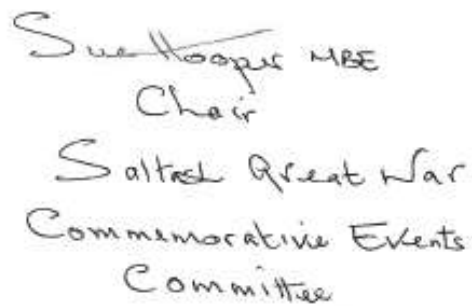 Sue Hooper MBE
Chair
Saltash Great War
Commemorative Events
Committee